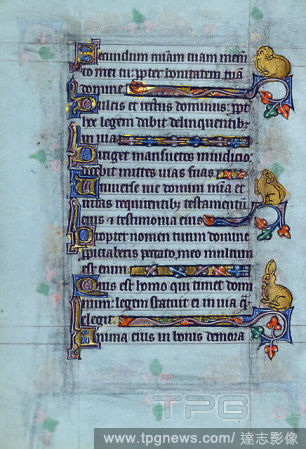 Secundum miam tuam mem
to mei tu: ppter bonitatem tuā
domine
Dulcis et rectus dominus: ppt
hoc legem dabit delinquentib;
in via
mansuetos in iudicio
mites vias suas
Universe vie domini mia et
veritas requirentib; testamentū
eius & testimonia eius
Propter nomen tuum domine
ppitiaberis peccato meo multum
est enim
Quis est homo qui timet domi
num: legem statuit ei in via q̄
elegit
Anima eius in bonis demora
TPG
www.tpgnews.com / 達志影像